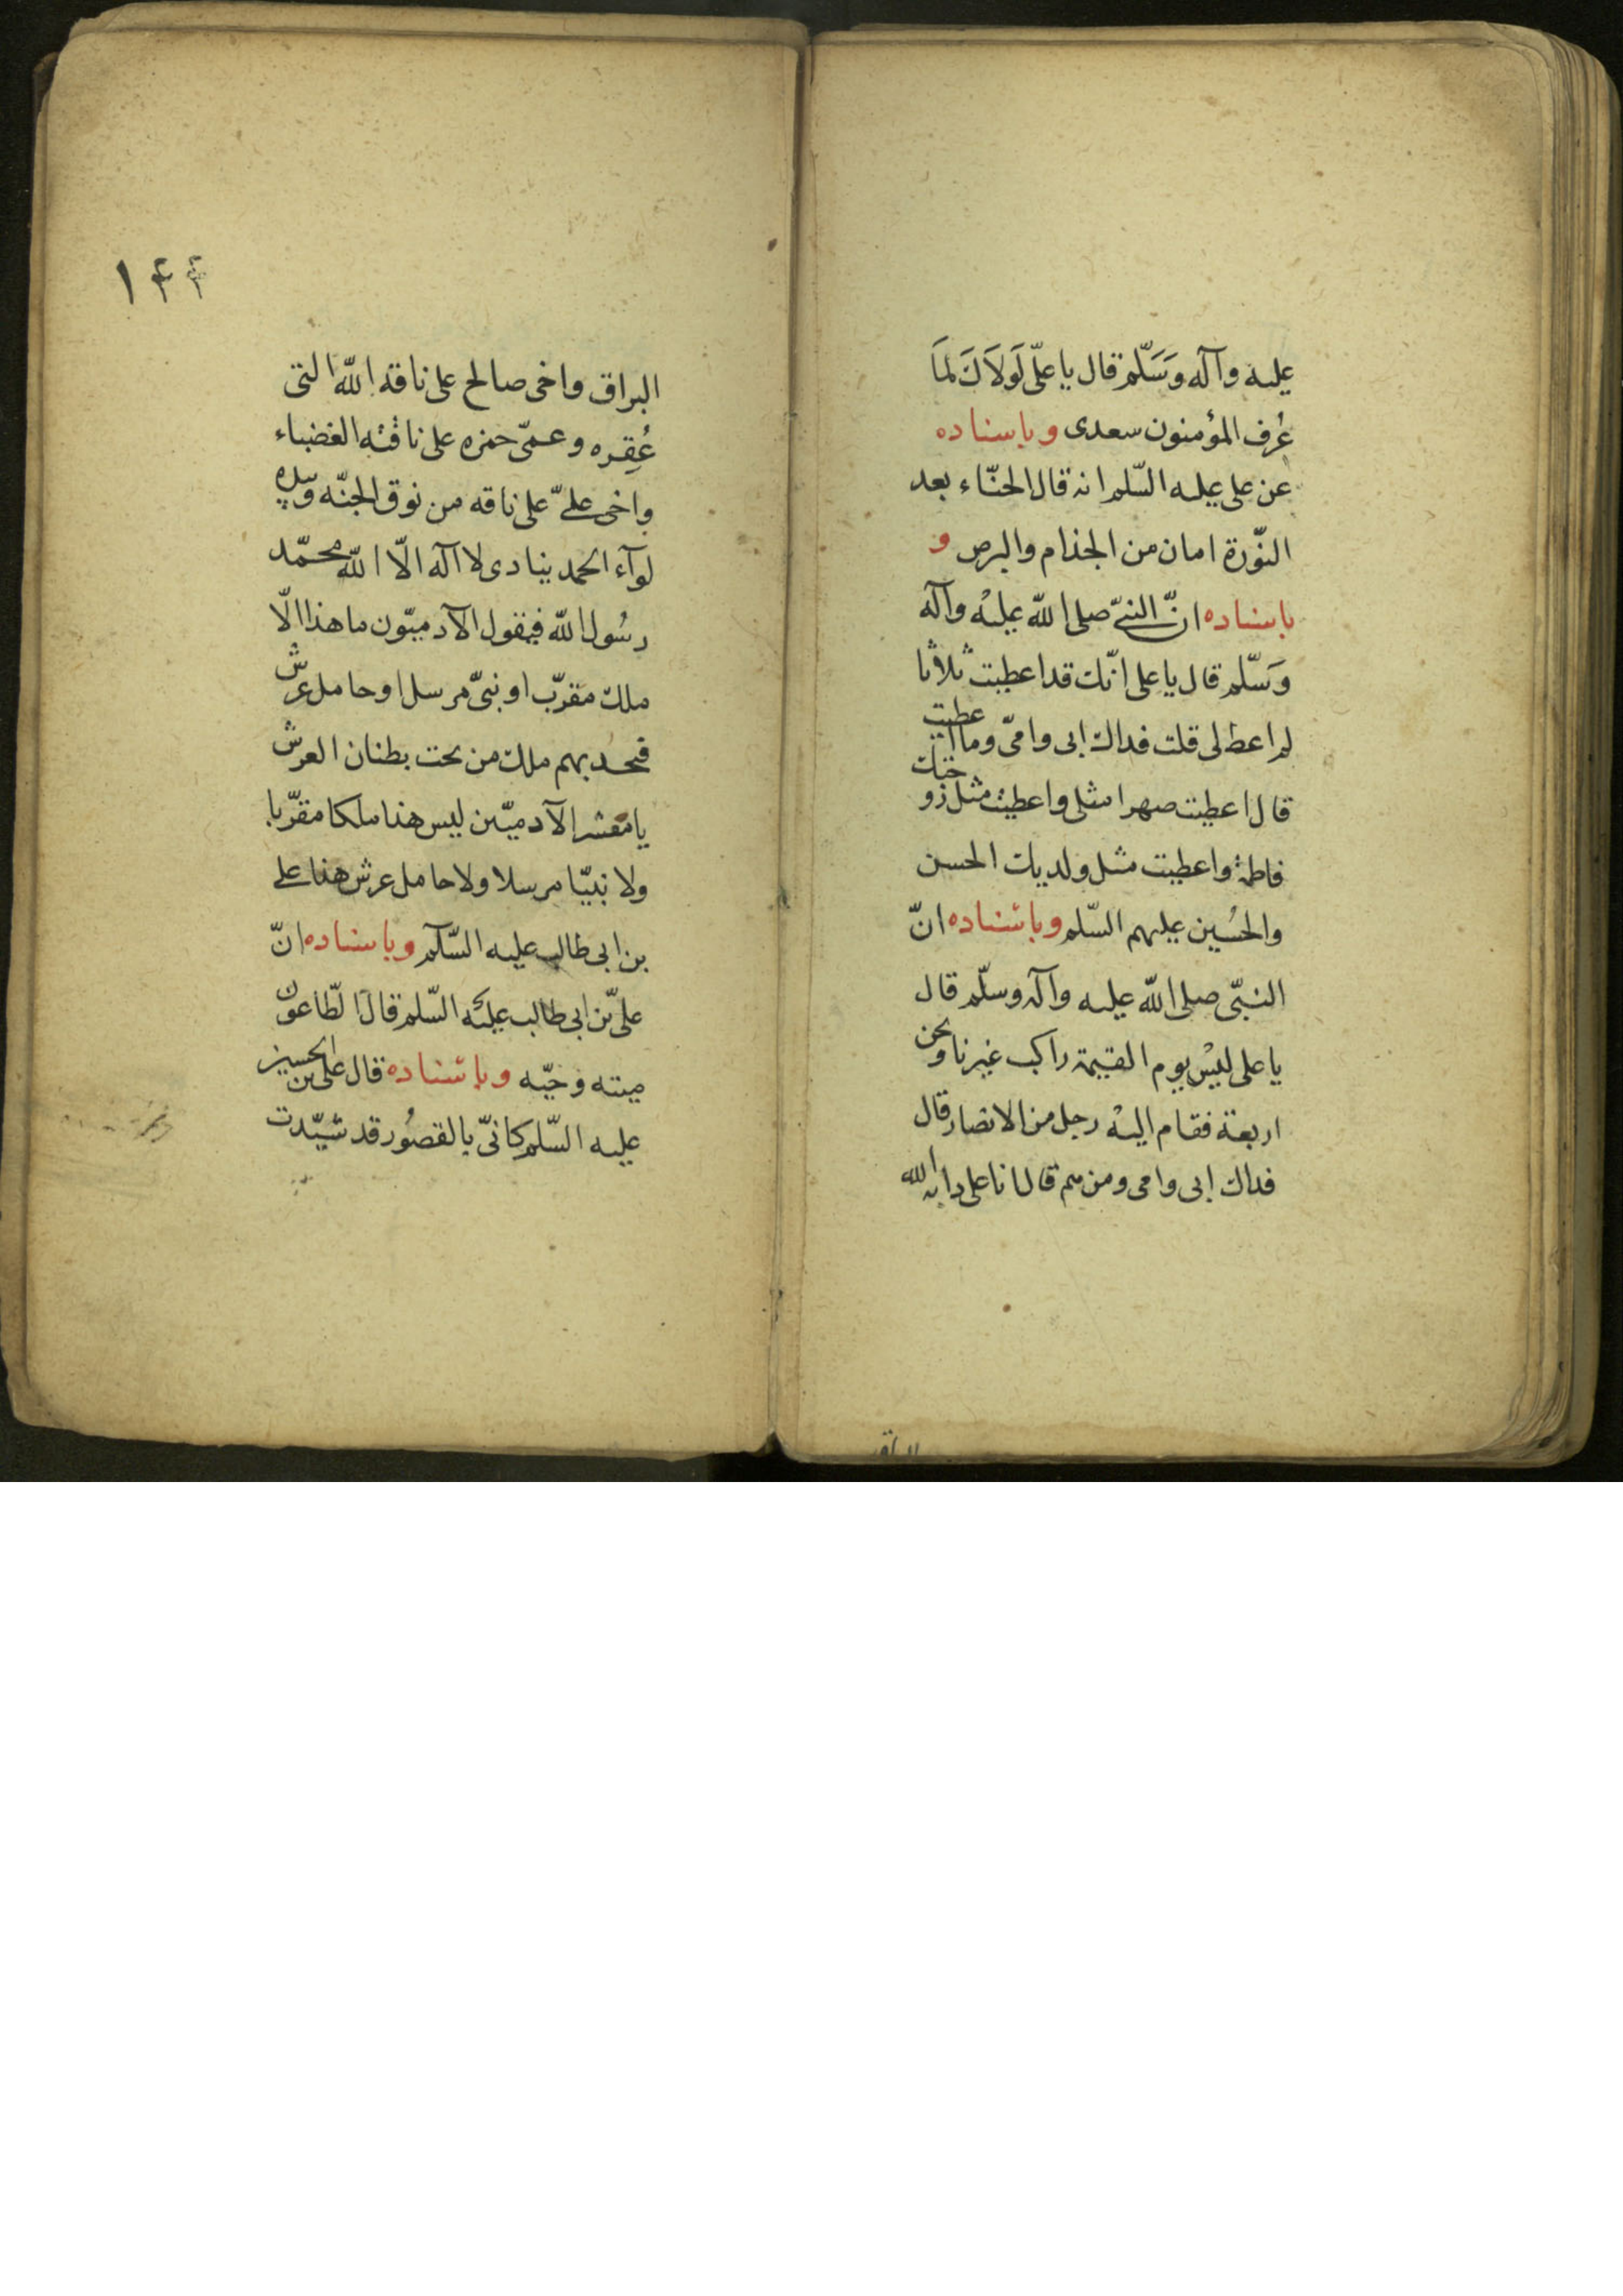 عليه وآله وَسَلّم قال يا علىّ لَولاَكَ لمَا
عُرف المؤمنون سعدى وباسناده
عن على عليه السّلم انه قال الحنّاء بعد
النوّرة امان من الجذام والبرص و
باسناده انّ النبىّ صلى اللّه عليْه وآله
وَسَلّم قال يا على انّك قد اعطيت ثلاثا
لم اعط لى قلت فداك ابى وامىّ وما اعطيت
قال اعطيت صهرا مثلى واعطيت مثل زوجتك
فاطمة واعطيت مثل ولديك الحسن
والحُسين عليهم السّلم وباسْناده انّ
النبىّ صلى اللّه عليه وآله وسلّم قال
يا على ليْس يوم القيمة راكب غيرنا ونحن
اربعة فقام اليْه رجل من الانصار قال
فداك ابى وامى ومن هم قال انا على دابه الله
البراق
١٤٤
البراق واخى صالح على ناقه اللّه التى
عُقِره وعمىّ حمزه على ناقته الغضباء
واخى علىّ على ناقه من نوق الجنّه وبيده
لوآء الحمد ينادى لا اله الّا اللّه محمّد
رسُول اللّه فيقول الآدميّون ما هذا الّا
ملك مقرّب او نبىّ مرسل او حامل عرش
فيحد بهم ملك من تحت بطنان العرش
يا معشر الآدميّين ليس هذا ملكا مقرّبا
ولا نبيّا مرسلا ولا حامل عرش هذا على
بن ابى طالب عليه السّلم وباسناده انّ
علىّ بن ابى طالب عليْه السّلم قال الطّاعون
ميته وحيّه وباسْناده قال على بن الحسين
عليه السّلم كانىّ بالقصُور قد شيّدت